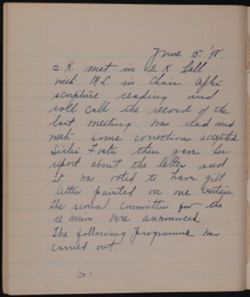 June 5, '18.
S.K. met in S.K. Hall
with M.L. in Chair. After
scripture reading and
roll call the record of the
last meeting was read and
with some corrections accepted
then gave her
report about the letter and
it was voted to have
letter printed on one
The social committee for the
was announced.
The following programme was
carried out.